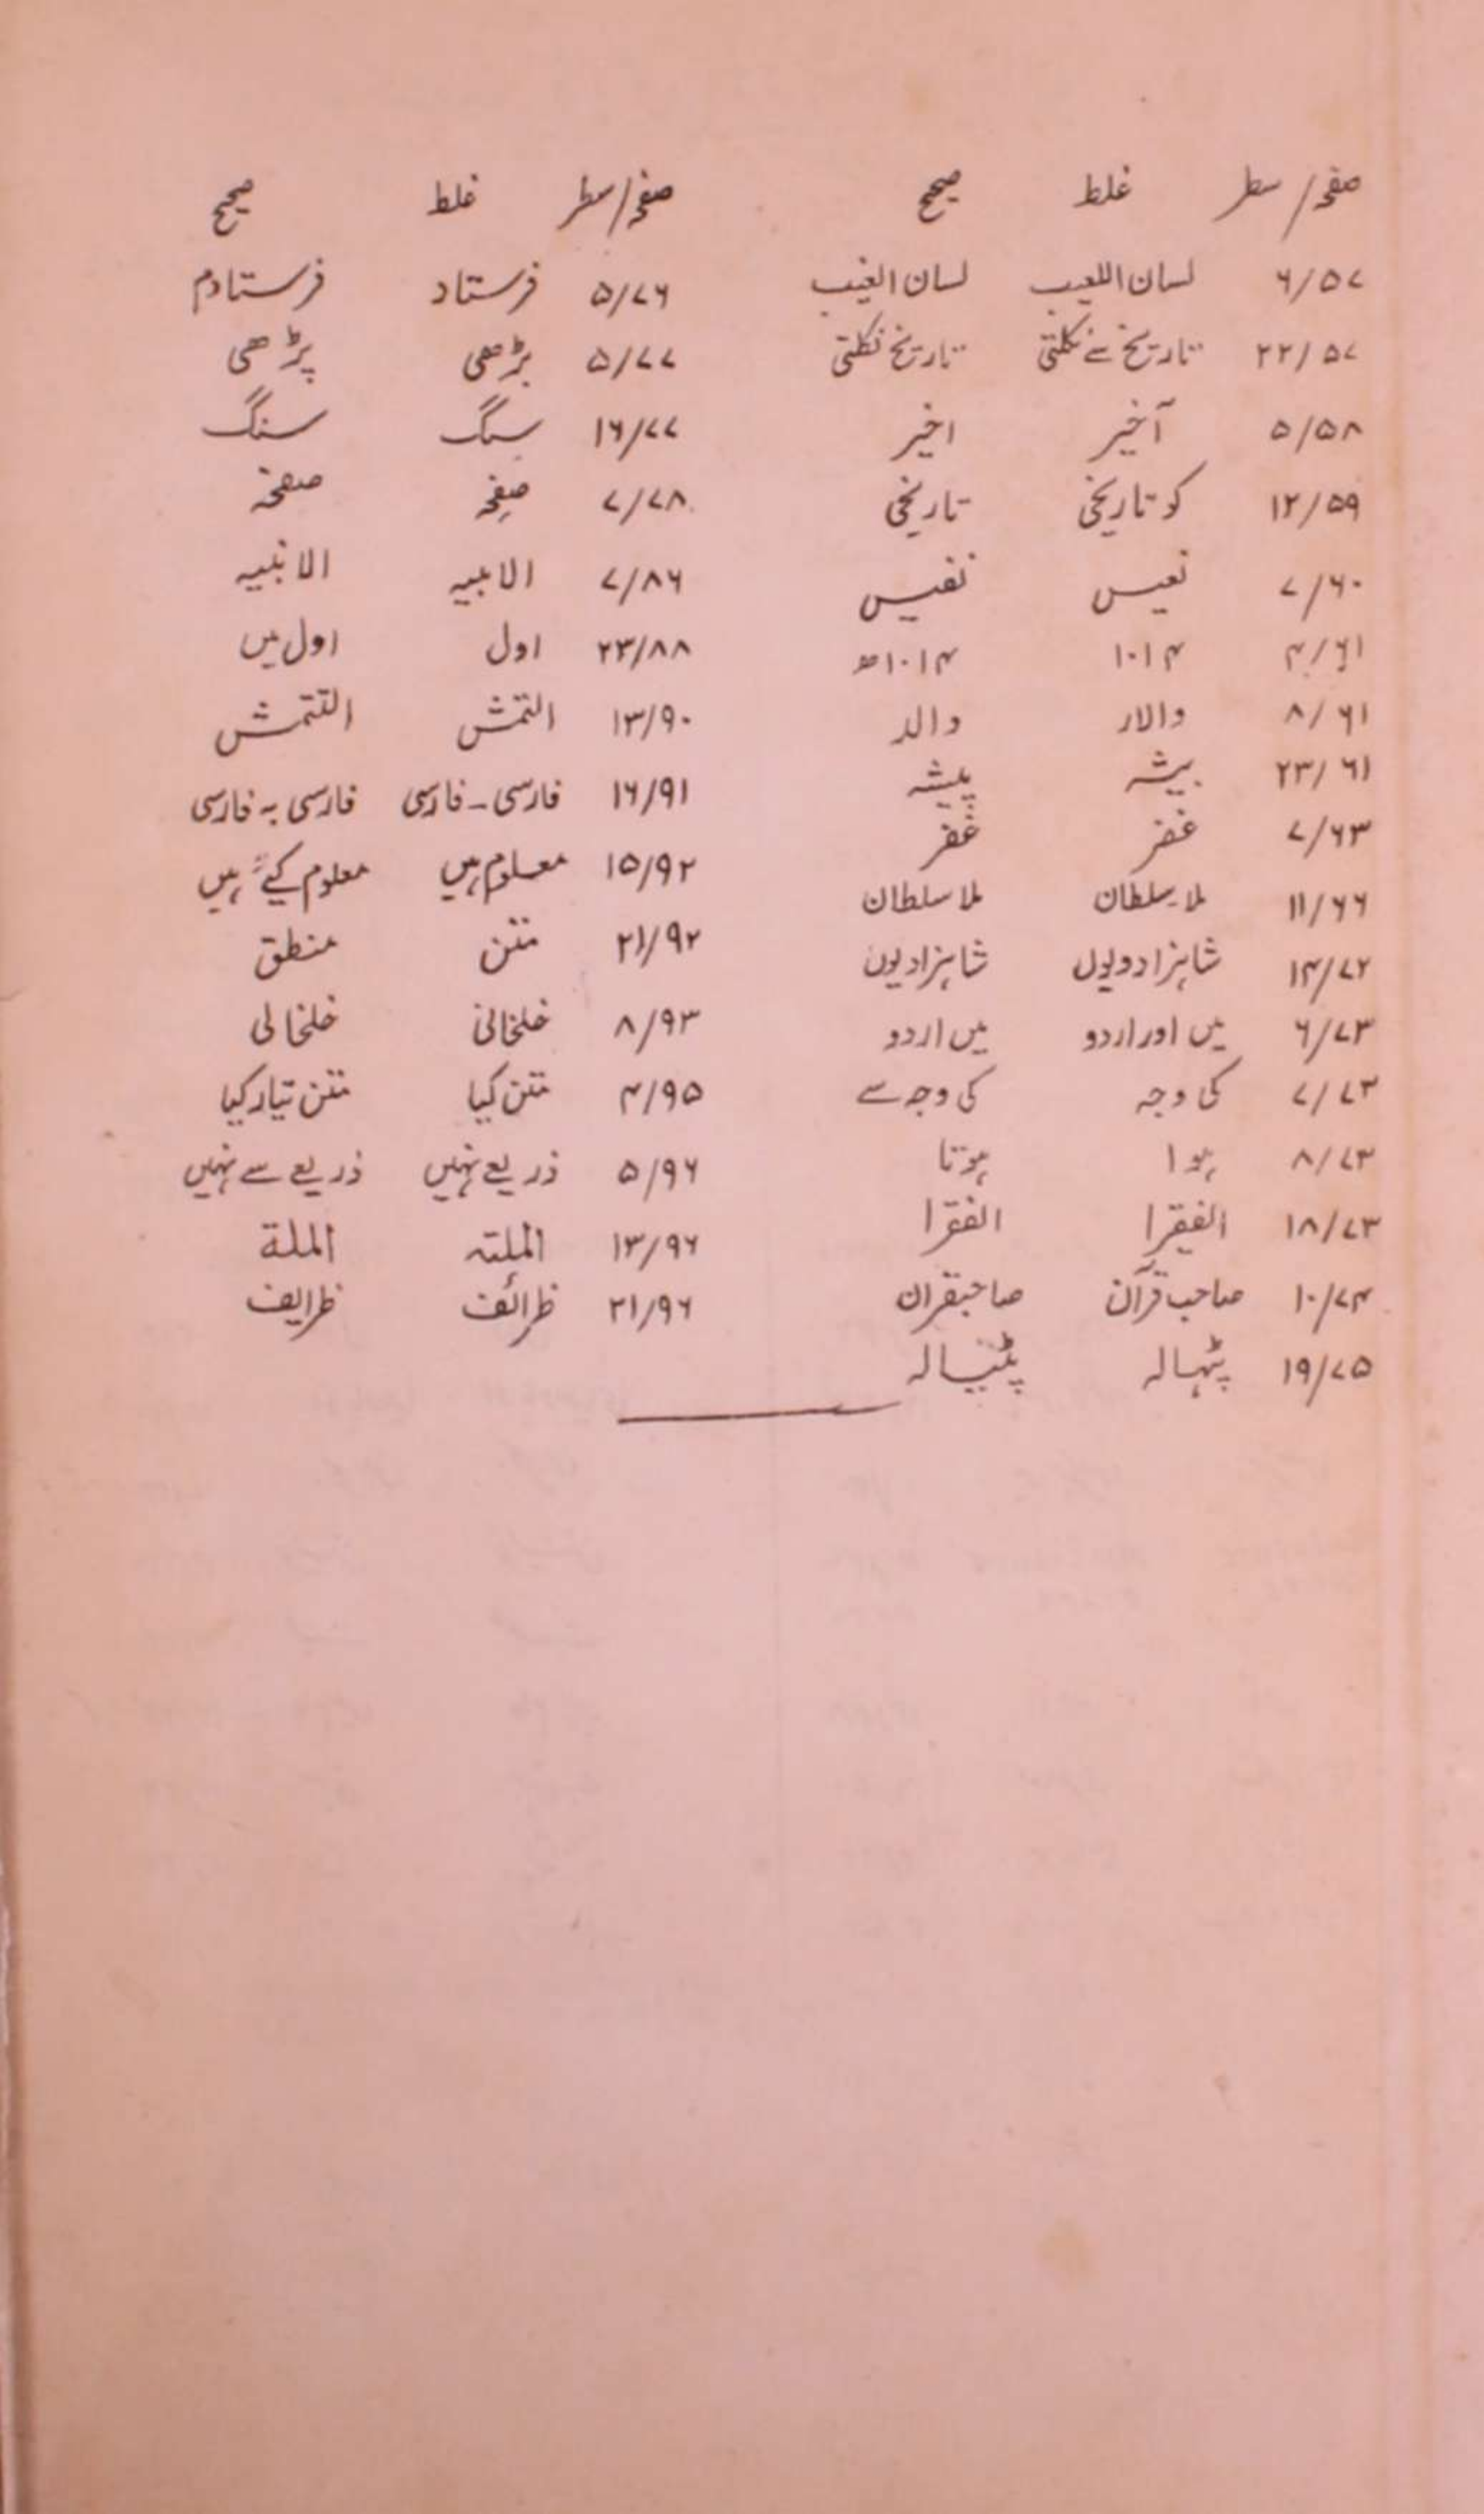 صفحہ/سطر غلط صحیح
۶/۵۷ لسان اللعیب لسان الغیب
۲۲/۵۷ تاریخ نے نکلتی تاریخ نکلتی
۵/۵۸ آخیر اخیر
۱۲/۵۹ کو تاریخی تاریخی
۷/۶۰ نعیس نفیس
۴/۶۱ ۱۰۱۴ ۱۰۱۴ھ
۸/۶۱ والار والد
۲۳/۶۱ بیشہ پیشہ
۷/۶۳ غفر
۱۱/۶۶ ملا سلطان
۱۴/۷۲ شاہزادویوں شاہزادیوں
۶/۷۳ میں اور اردو میں اردو
۷/۷۳ کی وجہ کی وجہ سے
۸/۷۳ ہوا ہوتا
۱۸/۷۳ الفیقرا الفقرا
۱۰/۷۴ صاحب قرآن صاحبقران
۱۹/۷۵ پٹہالہ پٹیالہ
صفحہ/سطر غلط صحیح
۵/۷۶ فرستاد فرستادم
۵/۷۷ بڑھی پڑھی
۱۶/۷۷ سگ سنگ
۷/۷۸ صفحہ
۷/۸۶ الابیہ الانبیہ
۲۳/۸۸ اول اول میں
۱۳/۹۰ التمش التتمش
۱۶/۹۱ فارسی۔فارسی فارسی بہ فارسی
۱۵/۹۲ معلوم ہیں معلوم کیے ہیں
۲۱/۹۲ متن منطق
۸/۹۳ خلخانی خلخالی
۴/۹۵ متن کیا متن تیار کیا
۵/۹۶ ذریعے نہیں ذریعے سے نہیں
۱۳/۹۶ الملتہ الملة
۲۱/۹۶ ظرائف ظرایف